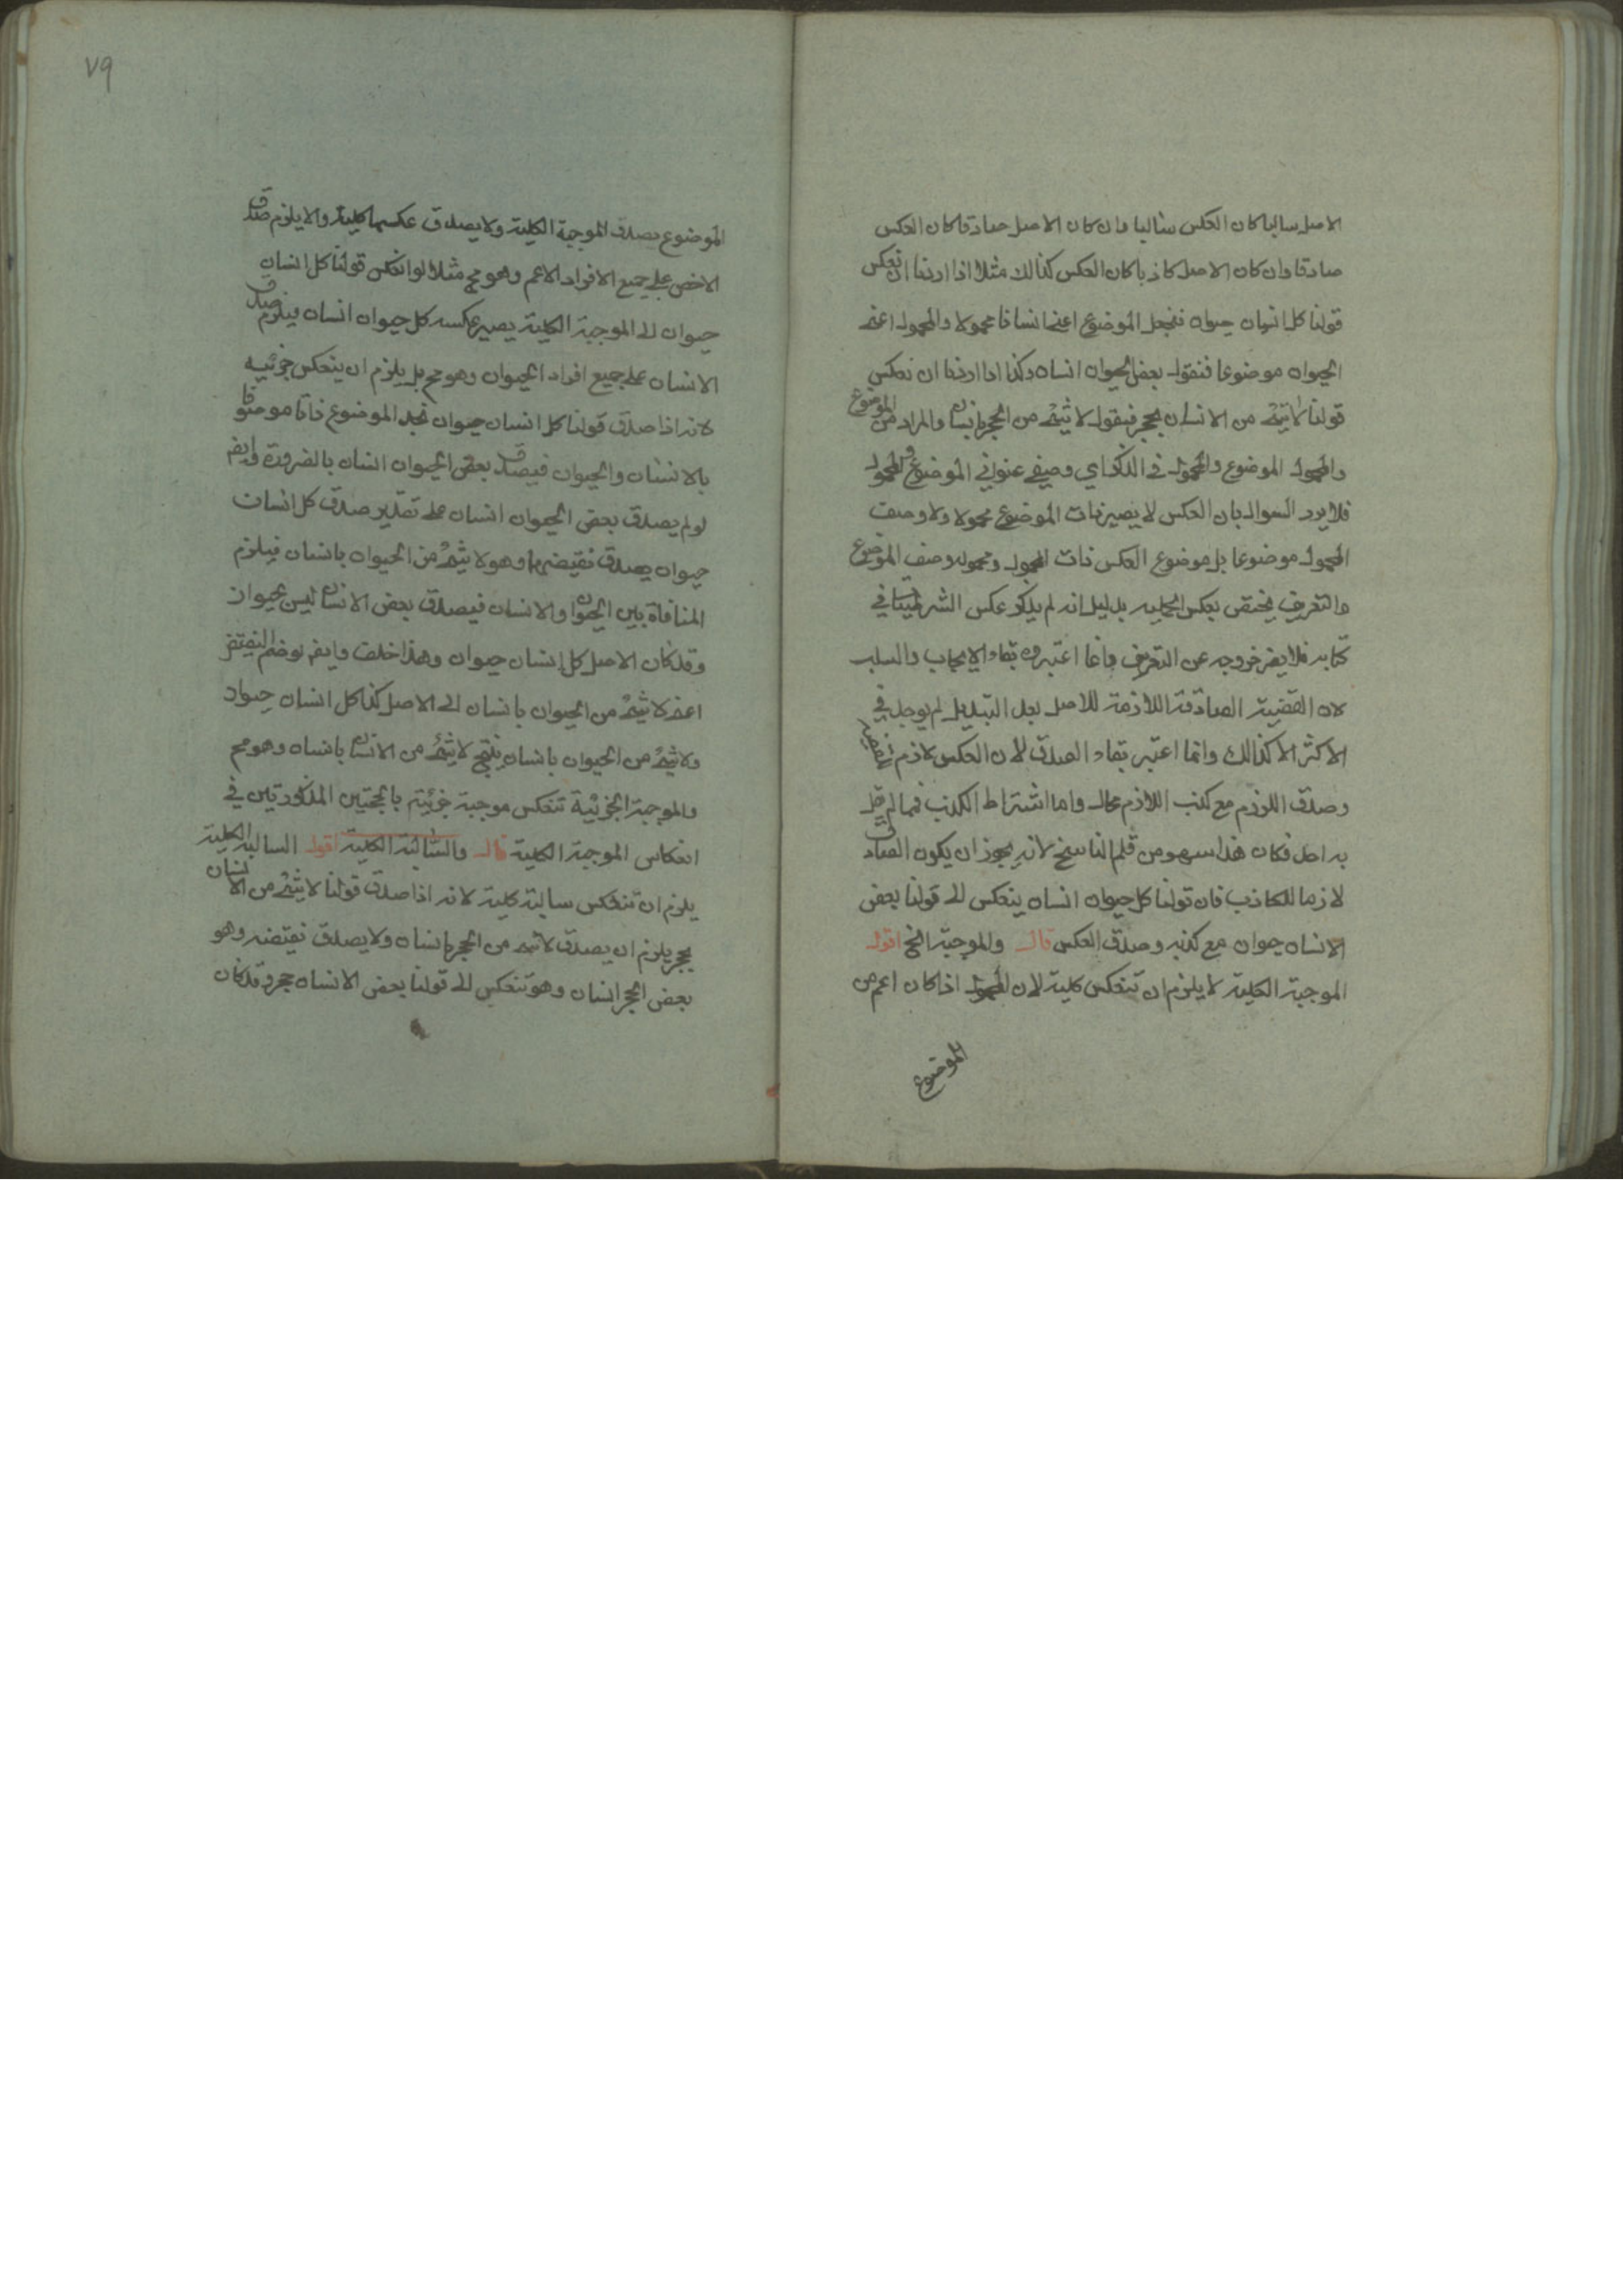 الاصل سالبا كان العكس سالبا وان كان الاصل صادقا كان العكس
صادقا وان كان الاصل كاذبا كان العكس كذالك مثلا اذا اردنا ان نعكس
قولنا كل انسان حيوان فنجعل الموضوع اعنى انسانا محمولا والمحمول اعنى
الحيوان موضوعا فنقول بعض الحيوان انسان وكذا اذا اردنا ان نعكس
قولنا لا شئ من الانسان بحجر فنقول لا شئ من الحجر بانسان والمراد من الموضوع
والمحمول الموضوع والمحمول في الذكر اي وصفي عنواني الموضوع والمحمول
فلا يرد السوال بان العكس لا يصير ذات الموضوع محمولا ولا وصف
المحمول موضوعا بل موضوع العكس ذات المحمول ومحموله وصف الموضوع
والتعريف يختص بعكس الحملية بدليل انه لم يذكر عكس الشرطيات في
كتابه فلا يضر خروجه عن التعريف وانما اعتبروه بقاء الايجاب والسلب
لان القضية الصادقة اللازمة للاصل بعد التبديل لم يوجد في
الاكثر الا كذالك وانما اعتبر بقاء الصدق لان العكس لازم
وصدق الملزوم مع كذب اللازم محال واما اشتراط الكذب فمما لم يقل
به احد فكان هذا سهو من قلم الناسخ لانه يجوز ان يكون الصادق
لازما للكاذب فان قولنا كل حيوان انسان ينعكس الى قولنا بعض
الانسان حيوان مع كذبه وصدق العكس قال والموجبة الخ اقول
الموجبة الكلية لا يلزم ان تنعكس كلية لان المحمول اذا كان اعم من
الموضوع
٧٩
الموضوع يصدق الموجبة الكلية ولا يصدق عكسها كلية والا يلزم صدق
الاخص على جميع الافراد الاعم وهو مح مثلا لو انعكس قولنا كل انسان
حيوان الى الموجبة الكلية يصير عكسه كل حيوان انسان فيلزم صدق
الانسان على جميع افراد الحيوان وهو مح بل يلزم ان ينعكس جزئيه
لانه اذا صدق قولنا كل انسان حيوان نجد الموضوع ذاتا موصوفا
بالانسان والحيوان فيصدق بعض الحيوان انسان بالضرورة وايضا
لو لم يصدق بعض الحيوان انسان على تقدير صدق كل انسان
حيوان يصدق نقيضها وهو لا شئ من الحيوان بانسان فيلزم
المنافاة بين الحيوان والانسان فيصدق بعض الانسان ليس بحيوان
وقد كان الاصل كل انسان حيوان وهذا خلف وايضا نوضم النقيض
اعنى لا شئ من الحيوان بانسان الى الاصل كذا كل انسان حيوان
ولا شئ من الحيوان بانسان ينتج لا شئ من الانسان بانسان وهو مح
والموجبة الجزئية تنعكس موجبة جزئية بالحجتين المذكورتين في
انعكاس الموجبة الكلية قال والسالبة الكلية اقول السالبة الكلية
يلزم ان تنعكس سالبة كلية لانه اذا صدق قولنا لا شئ من الانسان
بحجر يلزم ان يصدق لا شئ من الحجر بانسان ولا يصدق نقيضه وهو
بعض الحجر انسان وهو تنعكس الى قولنا بعض الانسان حجر وقد كان